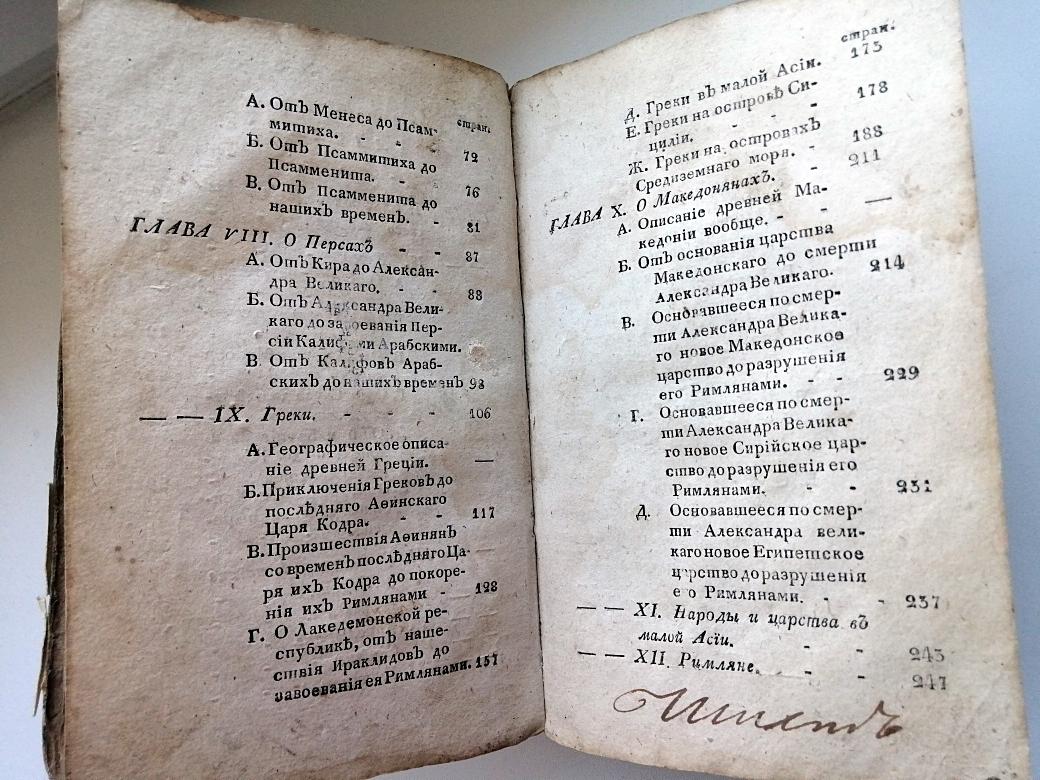 стран.
А. Отъ Менеса до Псам-
митиха. - - 72
Б. Отъ Псаммитиха до
Псамменита. - - 76
В. Отъ Псамменита до
нашихъ временъ. - 81
ГЛАВА VIII. О Персахъ - - 87
А. Отъ Кира до Алексан-
дра Великаго. - - 88
Б. Отъ Александра Вели-
каго до завоеванія Пер-
сіи Калифами Арабскими.
В. Отъ Калифовъ Араб-
скихъ до нашихъ временъ 98
— — IX. Греки. - - - 106
А. Географическое описа-
ніе древней Греціи. —
Б. Приключенія Грековъ до
послѣдняго Аѳинскаго
Царя Кодра. - - 117
В. Произшествія Аѳинянъ
со временъ послѣдняго Ца-
ря ихъ Кодра до покоре-
нія ихъ Римлянами - 128
Г. О Лакедемонской ре-
спубликѣ, отъ наше-
ствія Ираклидовъ до
завоеванія ея Римлянами. 157
стран.
Д. Греки въ малой Асіи. 173
Е. Греки на островѣ Си-
циліи. - - - 178
Ж. Греки на островахъ
Средиземнаго моря. - 188
ГЛАВА X. О Македонянахъ. - 211
А. Описаніе древней Ма-
кедоніи вообще. - - —
Б. Отъ основанія царства
Македонскаго до смерти
Александра Великаго. 214
В. Основавшееся по смер-
ти Александра Велика-
го новое Македонское
царство до разрушенія
его Римлянами. - - 229
Г. Основавшееся по смер-
ти Александра Велика-
го новое Сирійское цар-
ство до разрушенія его
Римлянами. - - 231
Д. Основавшееся по смер-
ти Александра вели-
каго новое Египетское
царство до разрушенія
его Римлянами. - - 237
— — XI. Народы и царства въ
малой Асіи. - - 243
— — XII. Римляне. - - 247